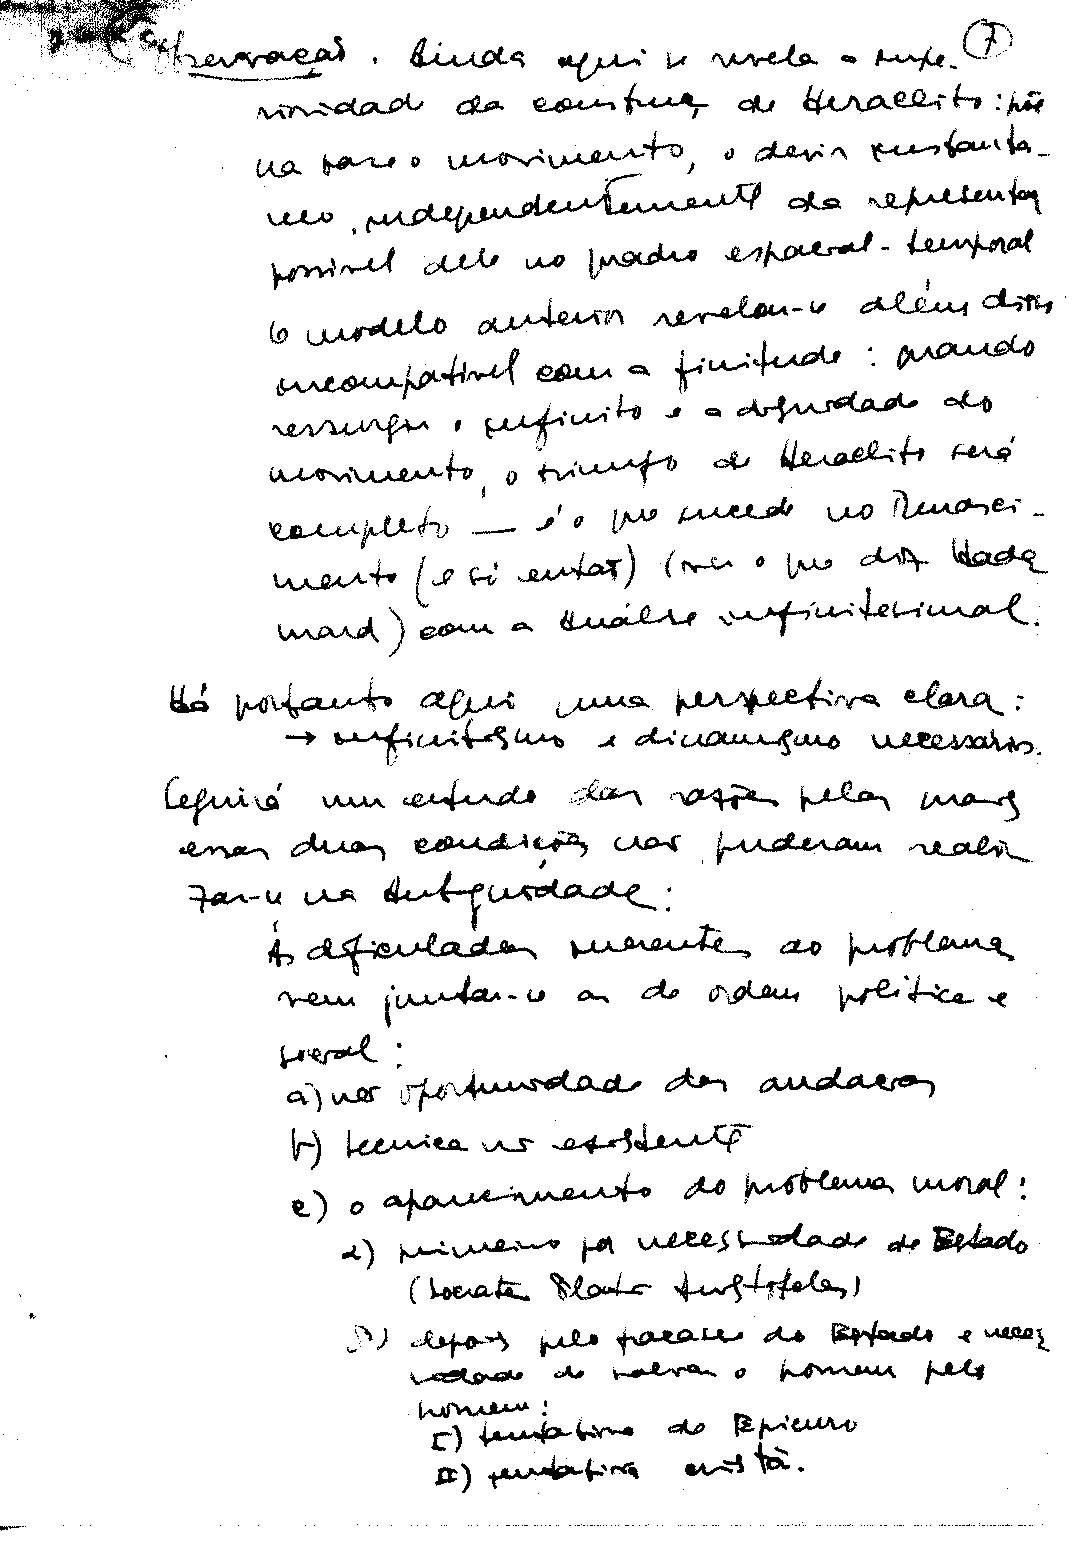 Observação. Ainda aqui se revela a supe- 7
rioridade da construç. de Heraclito: põe
na base o movimento, o devir instantâ-
neo, independentemente da representaç
possivel dele no quadro espacial-temporal
O modelo anterior revelou-se além disso
incompativel com a finitude: quando
ressurgir o infinito e a dignidade do
movimento, o triunfo de Heraclito será
completo — é o que sucede no Renasci-
mento (e só então) (ver o que diz Hada
mard) com a Análise infinitesimal.
Há portanto aqui uma perspectiva clara:
→ infinitismo e dinamismo necessários.
Seguirá um estudo das razões pelas quais
essas duas condições não puderam reali
zar-se na Antiguidade:
Às dificuldades inerentes ao problema
vem juntar-se as de ordem politica e
social:
a) não oportunidade das audacias
b) tecnica não existente
c) o aparecimento do problema moral:
α) primeiro por necessidade do Estado
(Socrates Platão Aristoteles)
β) depois pelo fracasso do Estado e neces
sidade de salvar o homem pelo
homem:
I) tentativa de Epicuro
II) tentativa cristã.